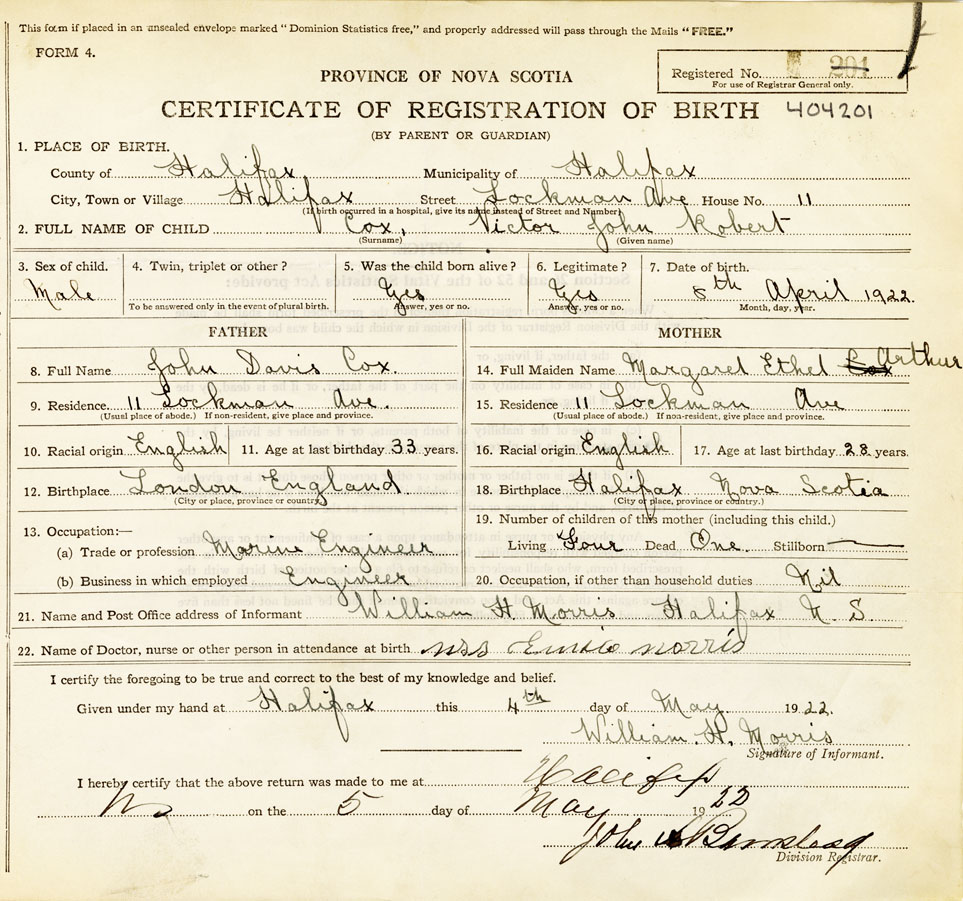 This form if placed in an unsealed envelope marked "Dominion Statistics free," and properly addressed will pass through the Mails "FREE."
FORM 4.
Registered No. 201
For use of Registrar General only.
PROVINCE OF NOVA SCOTIA
CERTIFICATE OF REGISTRATION OF BIRTH 404201
(BY PARENT OR GUARDIAN)
1. PLACE OF BIRTH.
County of Halifax Municipality of Halifax
City, Town or Village Halifax Street Lockman Ave House No. 11
(If birth occurred in a hospital, give its name instead of Street and Number)
2. FULL NAME OF CHILD Cox, Victor John Robert
(Surname) (Given name)
3. Sex of child. 4. Twin, triplet or other? 5. Was the child born alive? 6. Legitimate? 7. Date of birth.
Male Yes Yes 8th April 1922.
To be answered only in the event of plural birth. Answer, yes or no. Answer, yes or no. Month, day, year.
FATHER MOTHER
8. Full Name John Davis Cox. 14. Full Maiden Name Margaret Ethel Cox Arthur
9. Residence. 11 Lockman Ave. 15. Residence 11 Lockman Ave
(Usual place of abode.) If non-resident, give place and province. (Usual place of abode.) If non-resident, give place and province.
10. Racial origin English 11. Age at last birthday 33 years. 16. Racial origin English 17. Age at last birthday 28 years.
12. Birthplace London England. 18. Birthplace Halifax Nova Scotia
(City or place, province or country) (City or place, province or country.)
13. Occupation:— 19. Number of children of this mother (including this child.)
(a) Trade or profession Marine Engineer Living Four Dead One. Stillborn —
(b) Business in which employed Engineer 20. Occupation, if other than household duties Nil
21. Name and Post Office address of Informant William H. Morris Halifax N. S.
22. Name of Doctor, nurse or other person in attendance at birth
I certify the foregoing to be true and correct to the best of my knowledge and belief.
Given under my hand at Halifax this 4th day of May. 1922.
William. H. Morris
Signature of Informant.
I hereby certify that the above return was made to me at Halifax
NS on the 5 day of May 1922
John
Division Registrar.